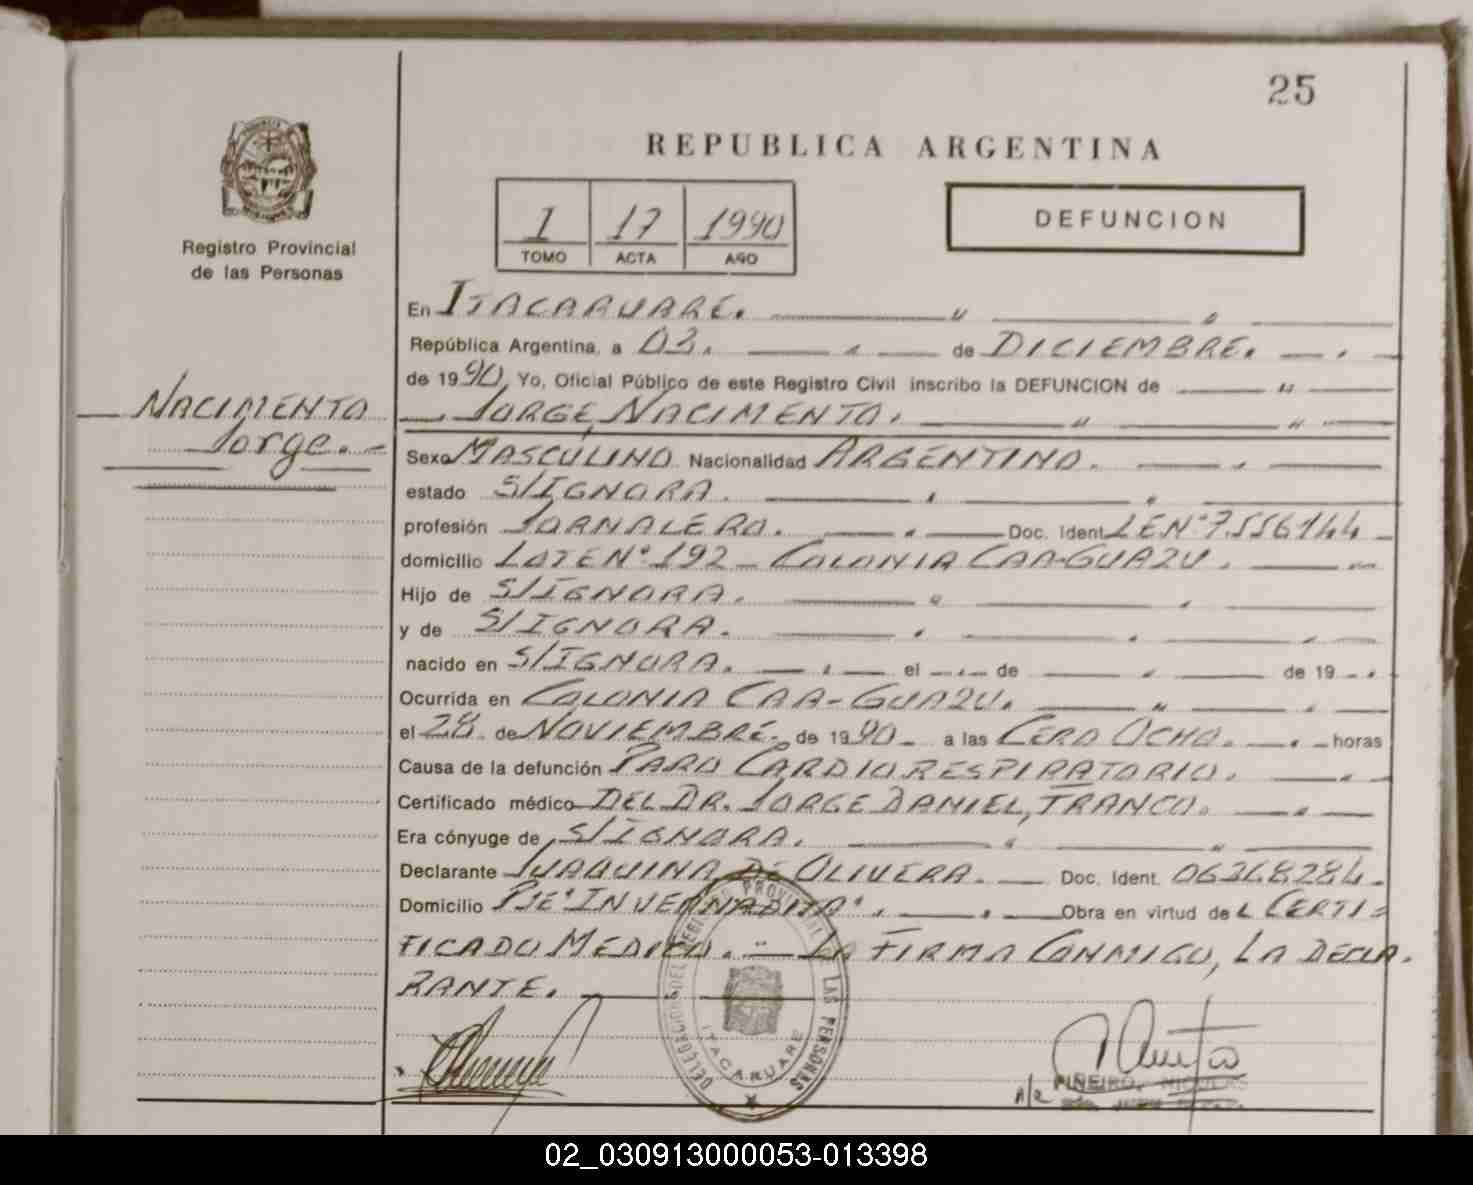 25
REPUBLICA ARGENTINA
Registro Provincial
de las Personas
1 17 1990
TOMO ACTA AÑO
DEFUNCION
En ITACARUARE.
República Argentina, a 03. de DICIEMBRE.
de 1990, Yo, Oficial Público de este Registro Civil inscribo la DEFUNCION de
JORGE, NACIMENTO.
NACIMENTO
Jorge.-
Sexo MASCULINO. Nacionalidad ARGENTINO.
estado S/IGNORA.
profesión JORNALERO. Doc. Ident. L.E.Nº 7.556144
domicilio LOTE Nº 192 - COLONIA CAA-GUAZU.
Hijo de S/IGNORA.
y de S/IGNORA.
nacido en S/IGNORA. el de de 19
Ocurrida en COLONIA CAA-GUAZU.
el 28 de NOVIEMBRE. de 1990 a las CERO OCHO. horas
Causa de la defunción PARO CARDIORESPIRATORIO.
Certificado médico DEL DR. JORGE DANIEL, FRANCO.
Era cónyuge de S/IGNORA.
Declarante JUAQUINA DE OLIVERA. Doc. Ident. 06268284.
Domicilio PJE "INVERNADITA". Obra en virtud de L CERTI-
FICADO MEDICO. LA FIRMA CONMIGO, LA DECLA.
RANTE.
DELEGACION DEL REGISTRO PROVINCIAL DE LAS PERSONAS
ITACARUARE
PIÑEIRO, NICOLAS
02_030913000053-013398